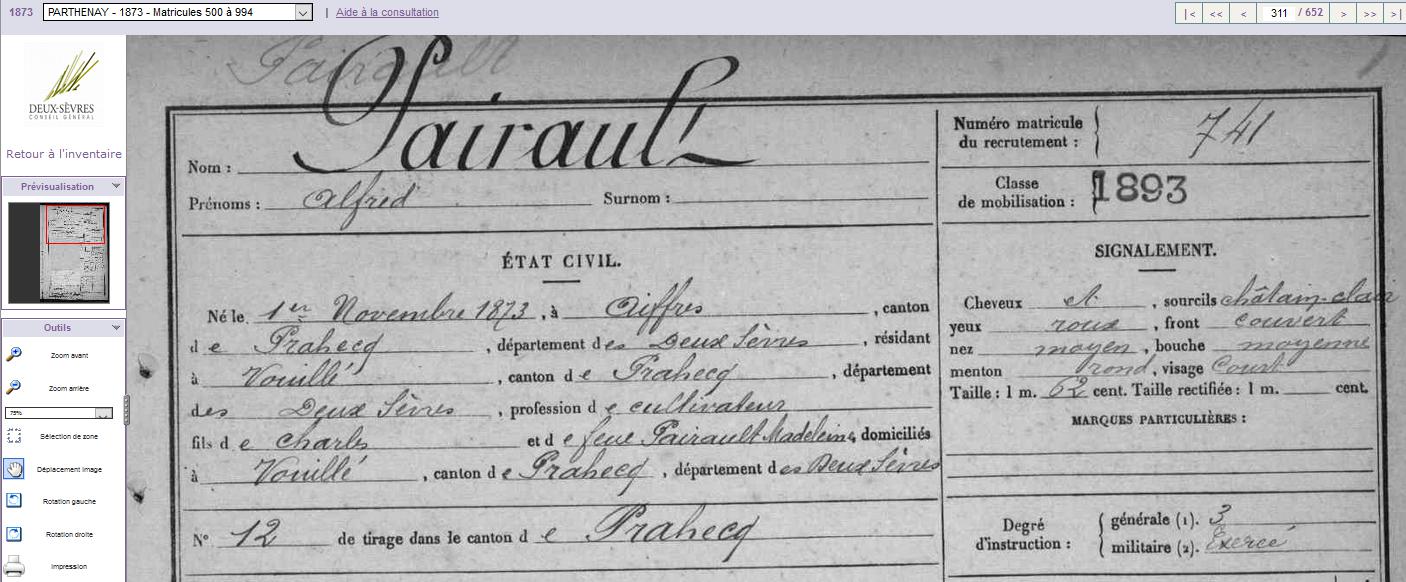 1873 PARTHENAY - 1873 - Matricules 500 à 994 | Aide à la consultation |< << < 311 / 652 > >> >|
DEUX-SÈVRES
CONSEIL GÉNÉRAL
Retour à l'inventaire
Prévisualisation
Outils
Zoom avant
Zoom arrière
75%
Sélection de zone
Déplacement image
Rotation gauche
Rotation droite
Impression
Pairault
Nom : Pairault
Prénoms : Alfred Surnom :
ÉTAT CIVIL.
Né le 1er Novembre 1873, à Aiffres, canton
de Prahecq, département des Deux Sèvres, résidant
à Vouillé, canton de Prahecq, département
des Deux Sèvres, profession de cultivateur
fils de Charles et de feue Pairault Madeleine domiciliés
à Vouillé, canton de Prahecq, département des Deux Sèvres
N° 12 de tirage dans le canton de Prahecq
Numéro matricule
du recrutement : 741
Classe
de mobilisation : 1893
SIGNALEMENT.
Cheveux et, sourcils châtain-clair
yeux roux, front couvert
nez moyen, bouche moyenne
menton rond, visage Court
Taille : 1 m. 62 cent. Taille rectifiée : 1 m. cent.
MARQUES PARTICULIÈRES :
Degré
d'instruction :
générale (1). 3
militaire (2). Exercé